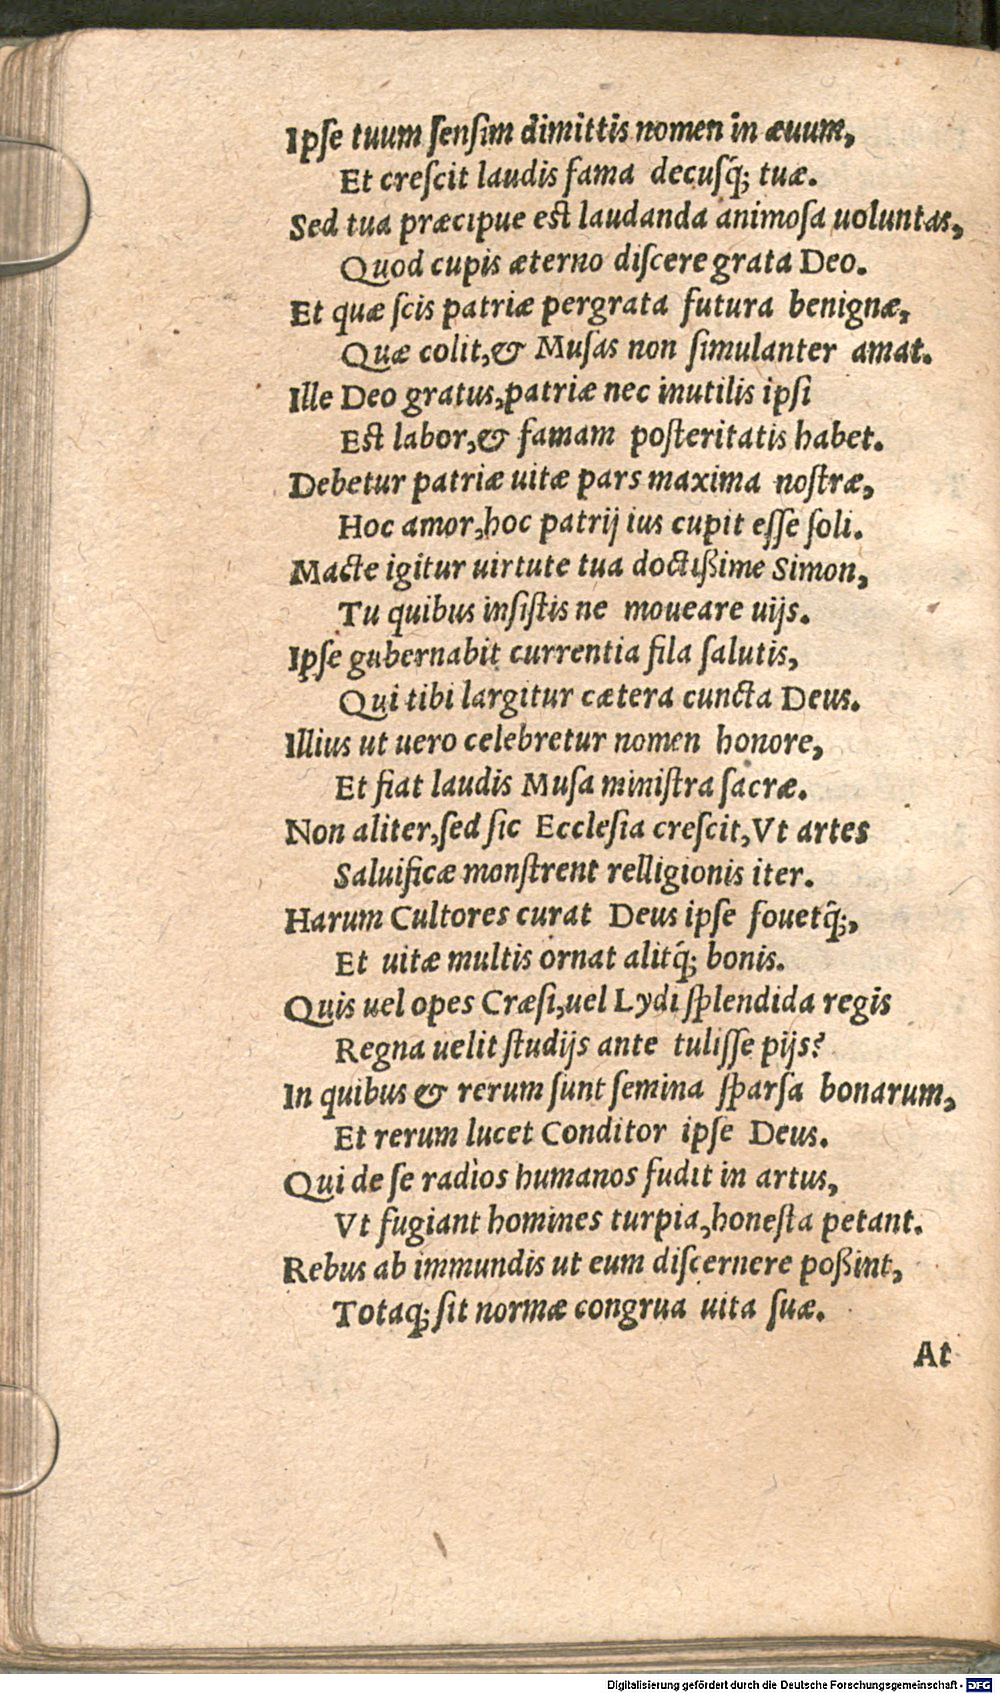 Ipſe tuum ſenſim dimittis nomen in æuum,
Et creſcit laudis fama decuſq́; tuæ.
Sed tua præcipue eſt laudanda animoſa uoluntas,
Quod cupis æterno diſcere grata Deo.
Et quæ ſcis patriæ pergrata futura benignæ,
Quæ colit,& Muſas non ſimulanter amat.
Ille Deo gratus,patriæ nec inutilis ipſi
Eſt labor,& famam poſteritatis habet.
Debetur patriæ uitæ pars maxima noſtræ,
Hoc amor,hoc patrij ius cupit eſſe ſoli.
Macte igitur uirtute tua doctißime Simon,
Tu quibus inſiſtis ne moueare uijs.
Ipſe gubernabit currentia fila ſalutis,
Qui tibi largitur cætera cuncta Deus.
Illius ut uero celebretur nomen honore,
Et fiat laudis Muſa miniſtra ſacræ.
Non aliter,ſed ſic Eccleſia creſcit,Vt artes
Saluificæ monſtrent relligionis iter.
Harum Cultores curat Deus ipſe fouetq́;,
Et uitæ multis ornat alitq́; bonis.
Quis uel opes Cræſi,uel Lydi ſplendida regis
Regna uelit ſtudijs ante tuliſſe pijs?
In quibus & rerum ſunt ſemina ſparſa bonarum,
Et rerum lucet Conditor ipſe Deus.
Qui de ſe radios humanos fudit in artus,
Vt fugiant homines turpia,honeſta petant.
Rebus ab immundis ut eum diſcernere poßint,
Totaq; ſit normæ congrua uita ſuæ.
At
Digitalisierung gefördert durch die Deutsche Forschungsgemeinschaft - DFG